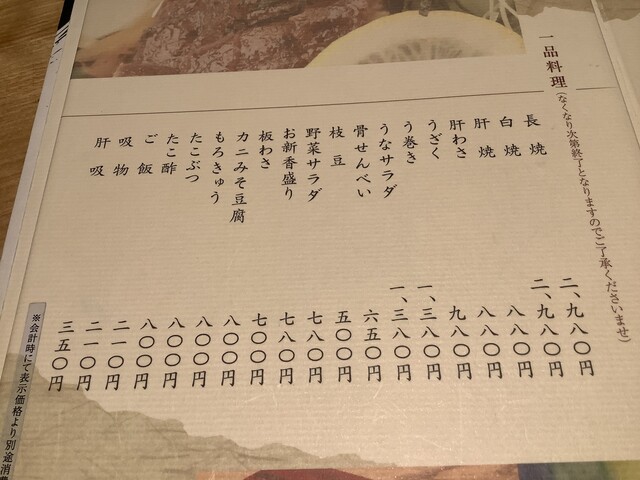 一品料理(なくなり次第終了となりますのでご了承くださいませ)
長焼 二、九八〇円
白焼 二、九八〇円
肝焼 八八〇円
肝わさ 八八〇円
うざく 九八〇円
う巻き 一、三八〇円
うなサラダ 一、三八〇円
骨せんべい 六五〇円
枝豆 五〇〇円
野菜サラダ 七八〇円
お新香盛り 七八〇円
板わさ 七〇〇円
カニみそ豆腐 八〇〇円
もろきゅう 八〇〇円
たこぶつ 八〇〇円
たこ酢 八〇〇円
ご飯 二一〇円
吸物 二一〇円
肝吸 三五〇円
※会計時にて表示価格より別途消費